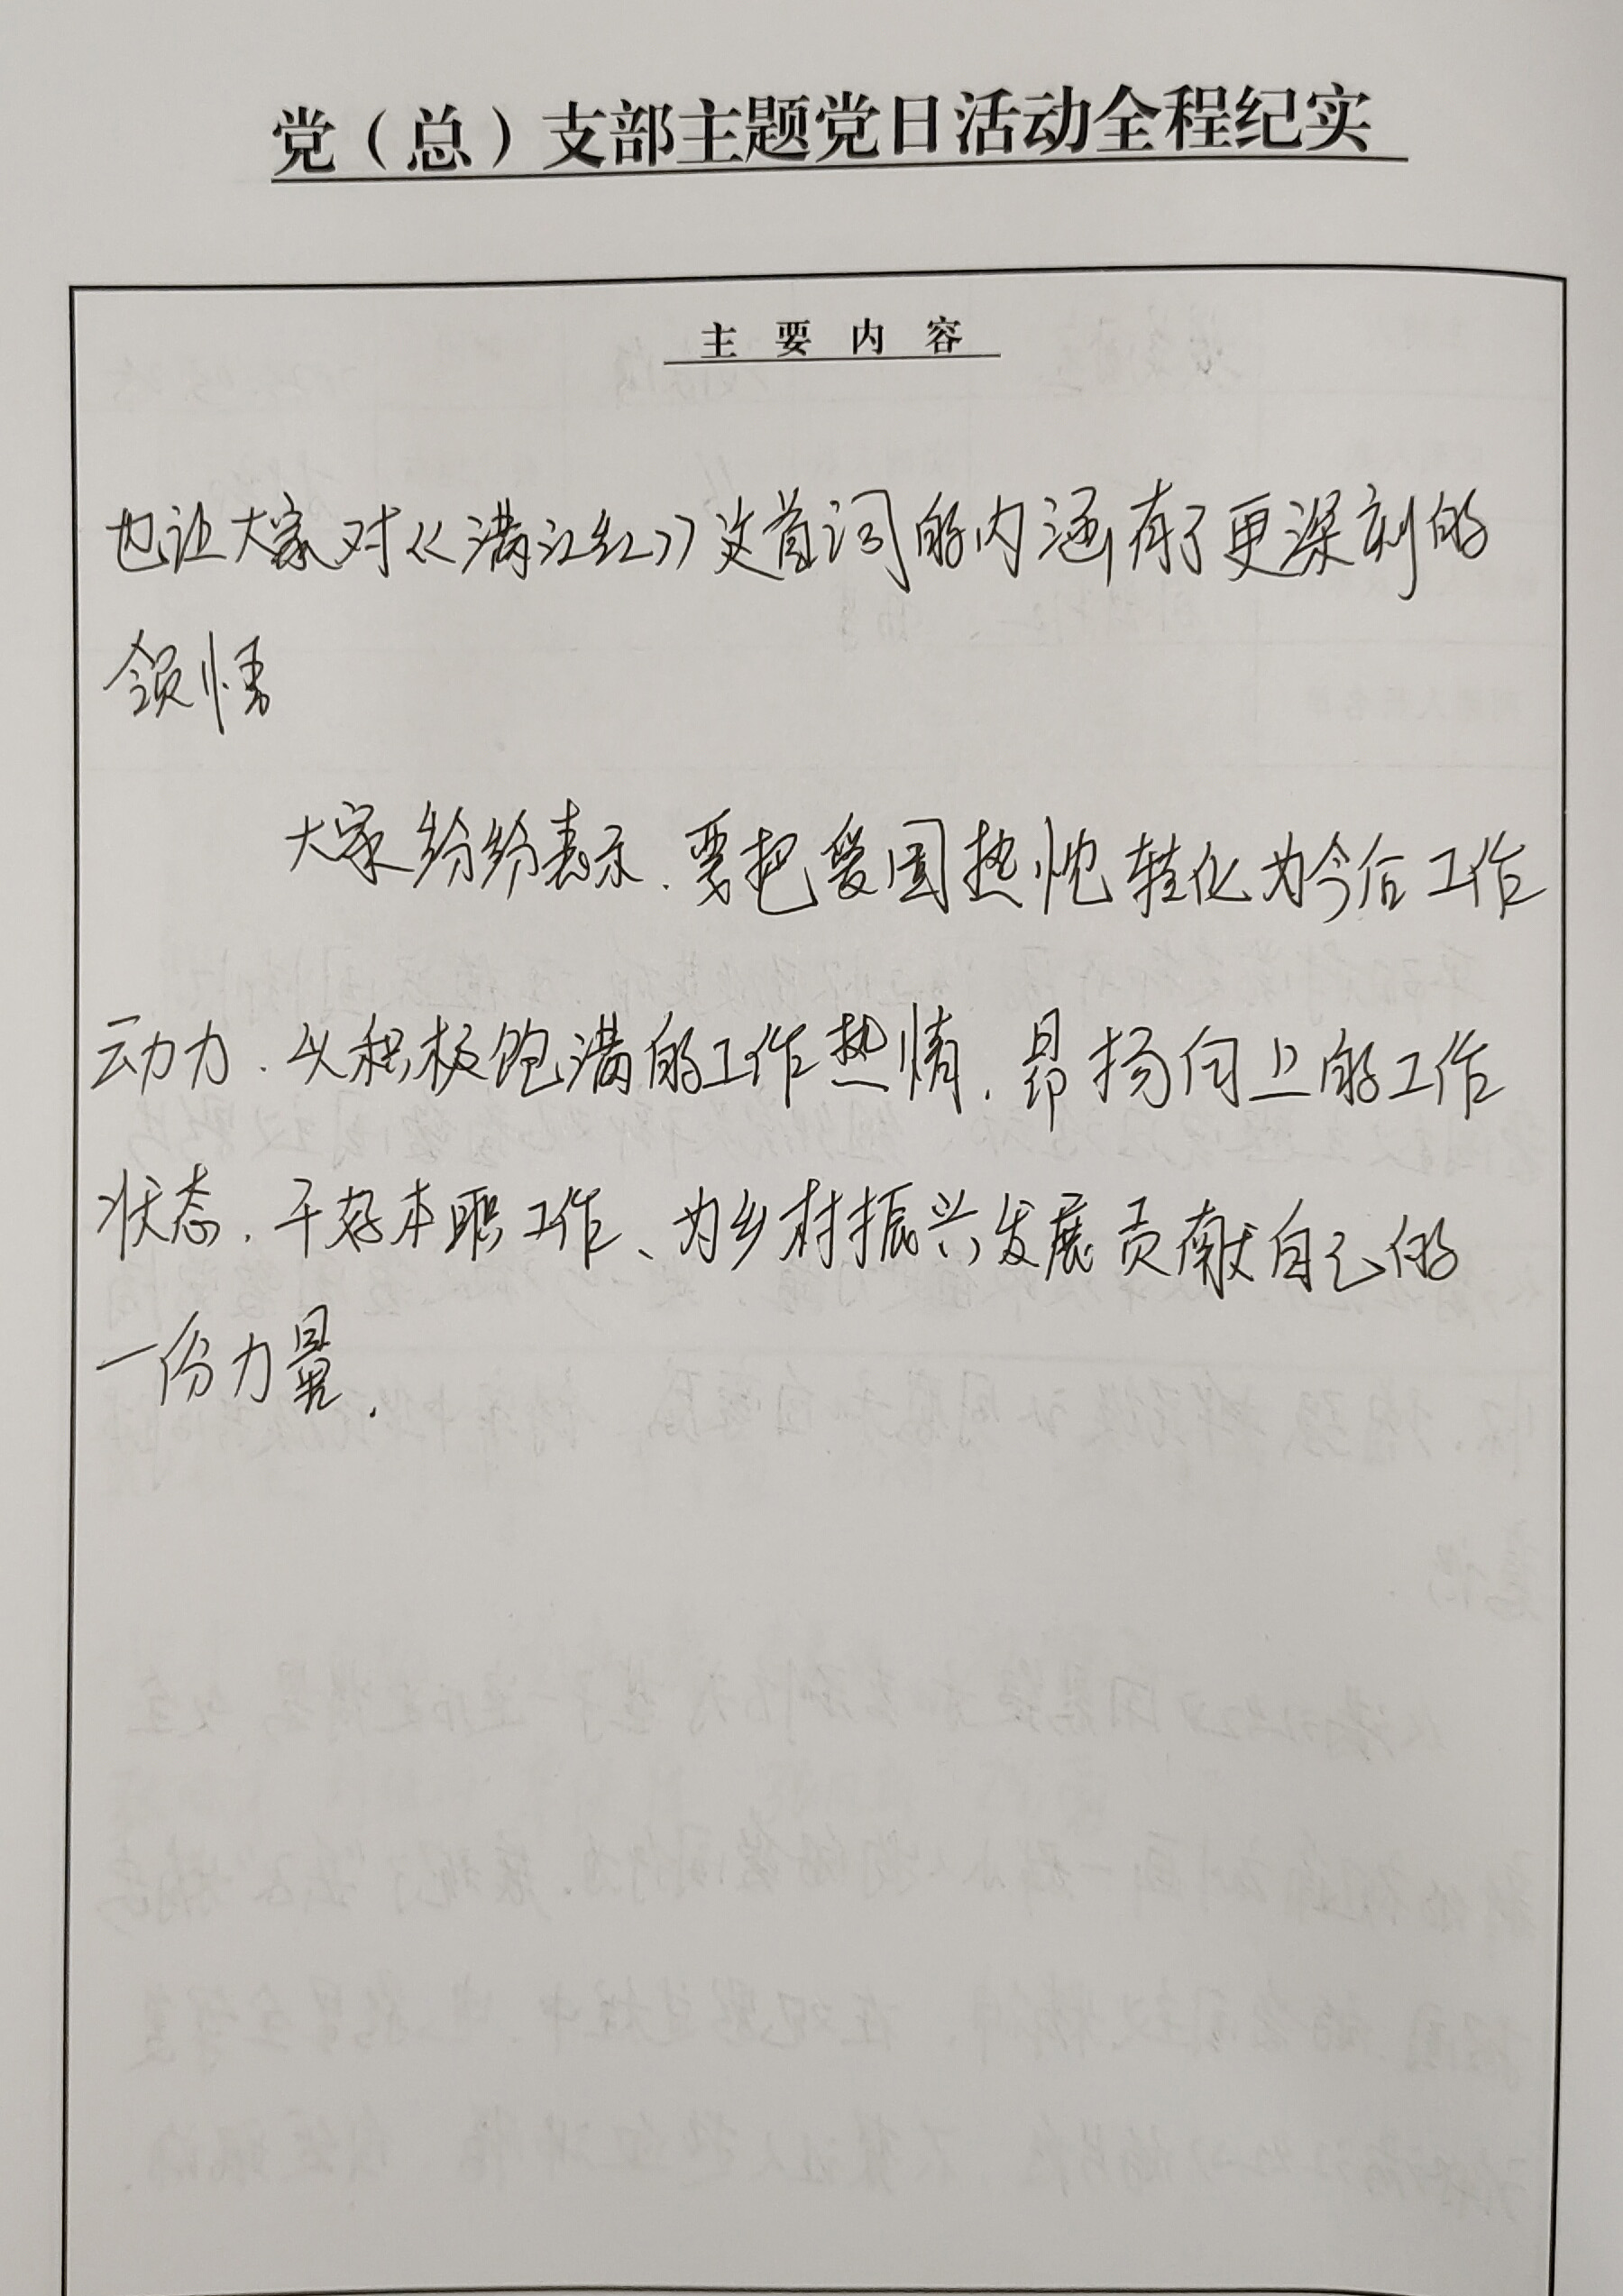 党（总）支部主题党日活动全程纪实
主要内容
也让大家对《满江红》这首词的内涵有了更深刻的
领悟
大家纷纷表示.要把爱国热忱转化为今后工作
动力.以积极饱满的工作热情.昂扬向上的工作
状态.干好本职工作、为乡村振兴发展贡献自己的
一份力量.